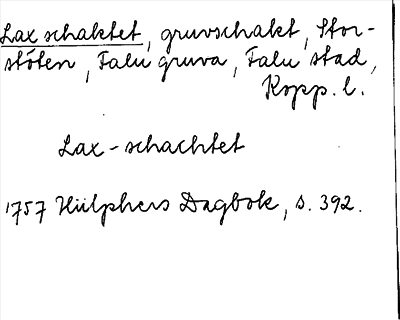 Laxschaktet, gruvschakt, Stor-
stöten, Falu gruva, Falu stad,
Kopp. l.
Lax-schachtet
1757 Hülphers Dagbok, s. 392.